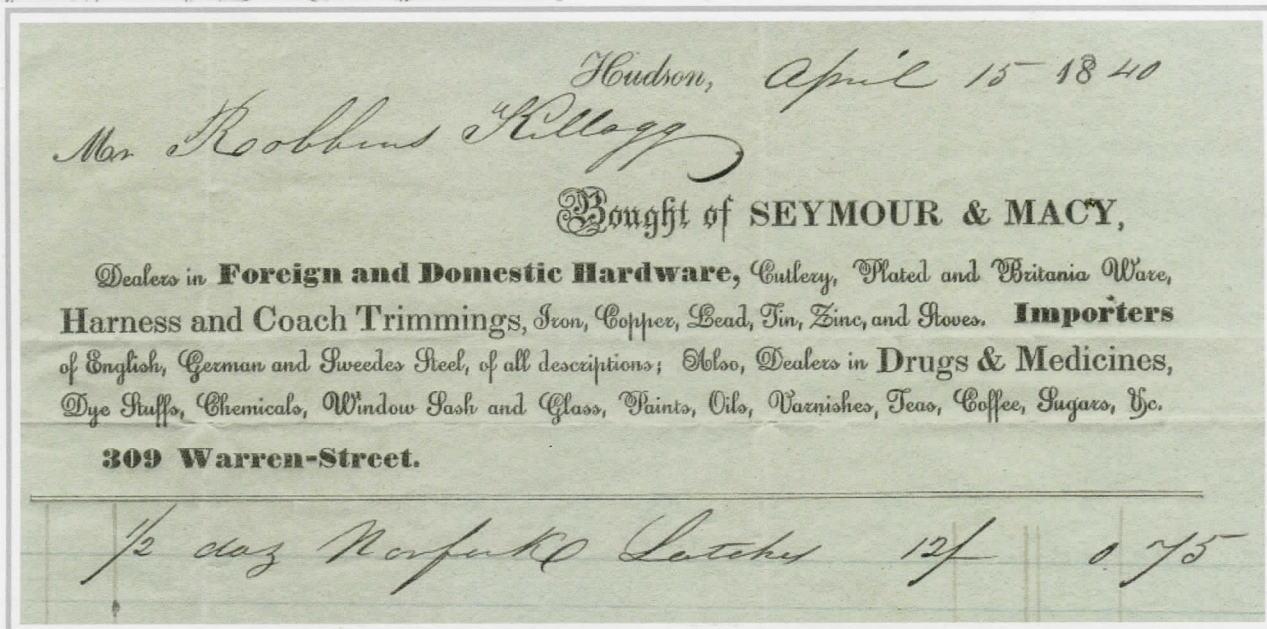 Hudson, April 15 1840
Mr Robbins Killogg
Bought of SEYMOUR & MACY,
Dealers in Foreign and Domestic Hardware, Cutlery, Plated and Britania Ware,
Harness and Coach Trimmings, Iron, Copper, Lead, Tin, Zinc, and Stoves. Importers
of English, German and Sweedes Steel, of all descriptions; Also, Dealers in Drugs & Medicines,
Dye Stuffs, Chemicals, Window Sash and Glass, Paints, Oils, Varnishes, Teas, Coffee, Sugars, &c.
309 Warren-Street.
1/2 doz Norfork Latches 12/ 0 75